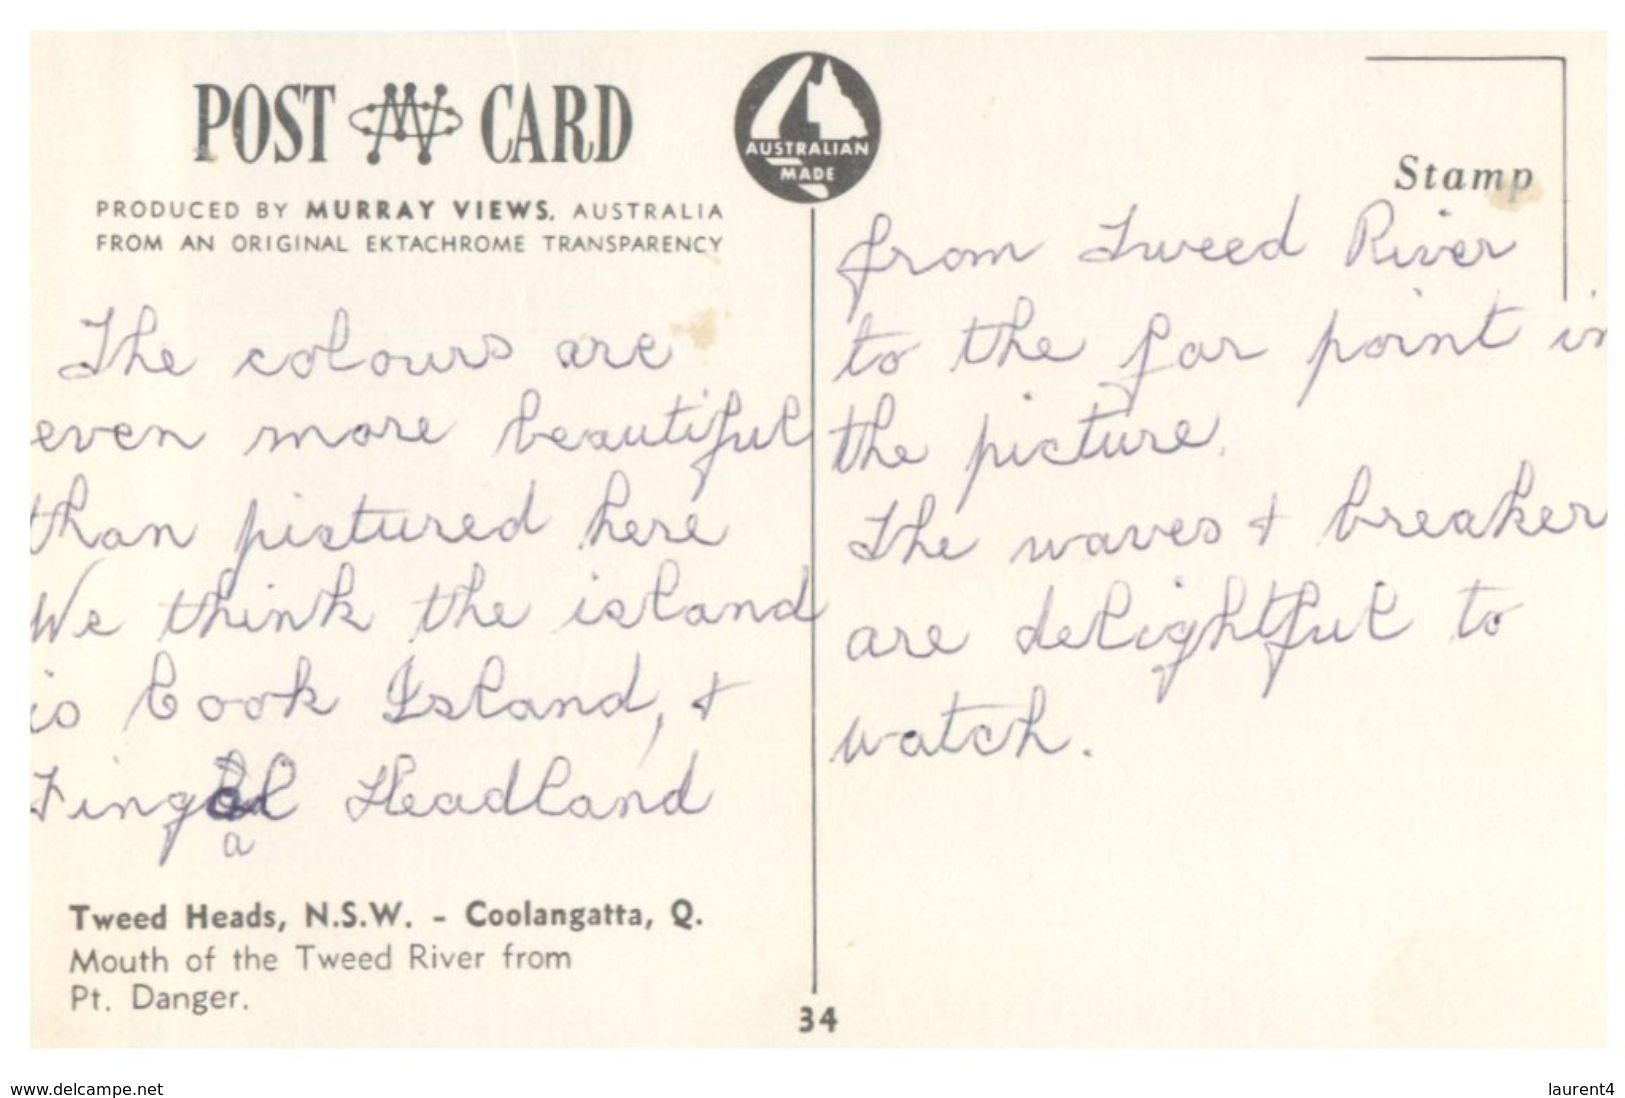 POST CARD
PRODUCED BY MURRAY VIEWS, AUSTRALIA
FROM AN ORIGINAL EKTACHROME TRANSPARENCY
AUSTRALIAN
MADE
Stamp
The colours are
even more beautiful
than pictured here
We think the island
is Cook Island, &
Fingal Headland
a
from Tweed River
to the far point in
the picture.
The waves & breaker
are delightful to
watch.
Tweed Heads, N.S.W. - Coolangatta, Q.
Mouth of the Tweed River from
Pt. Danger.
34
www.delcampe.net
laurent4